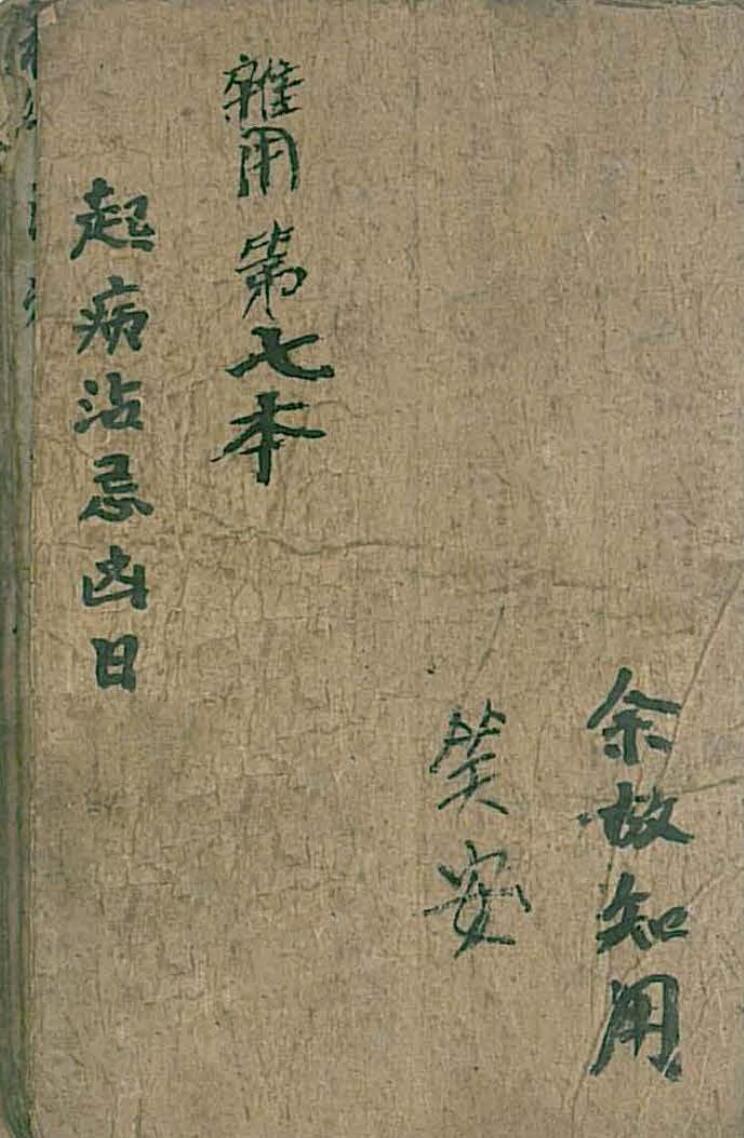 余故知用
笑安
雜用第七本
起病沾忌凶日